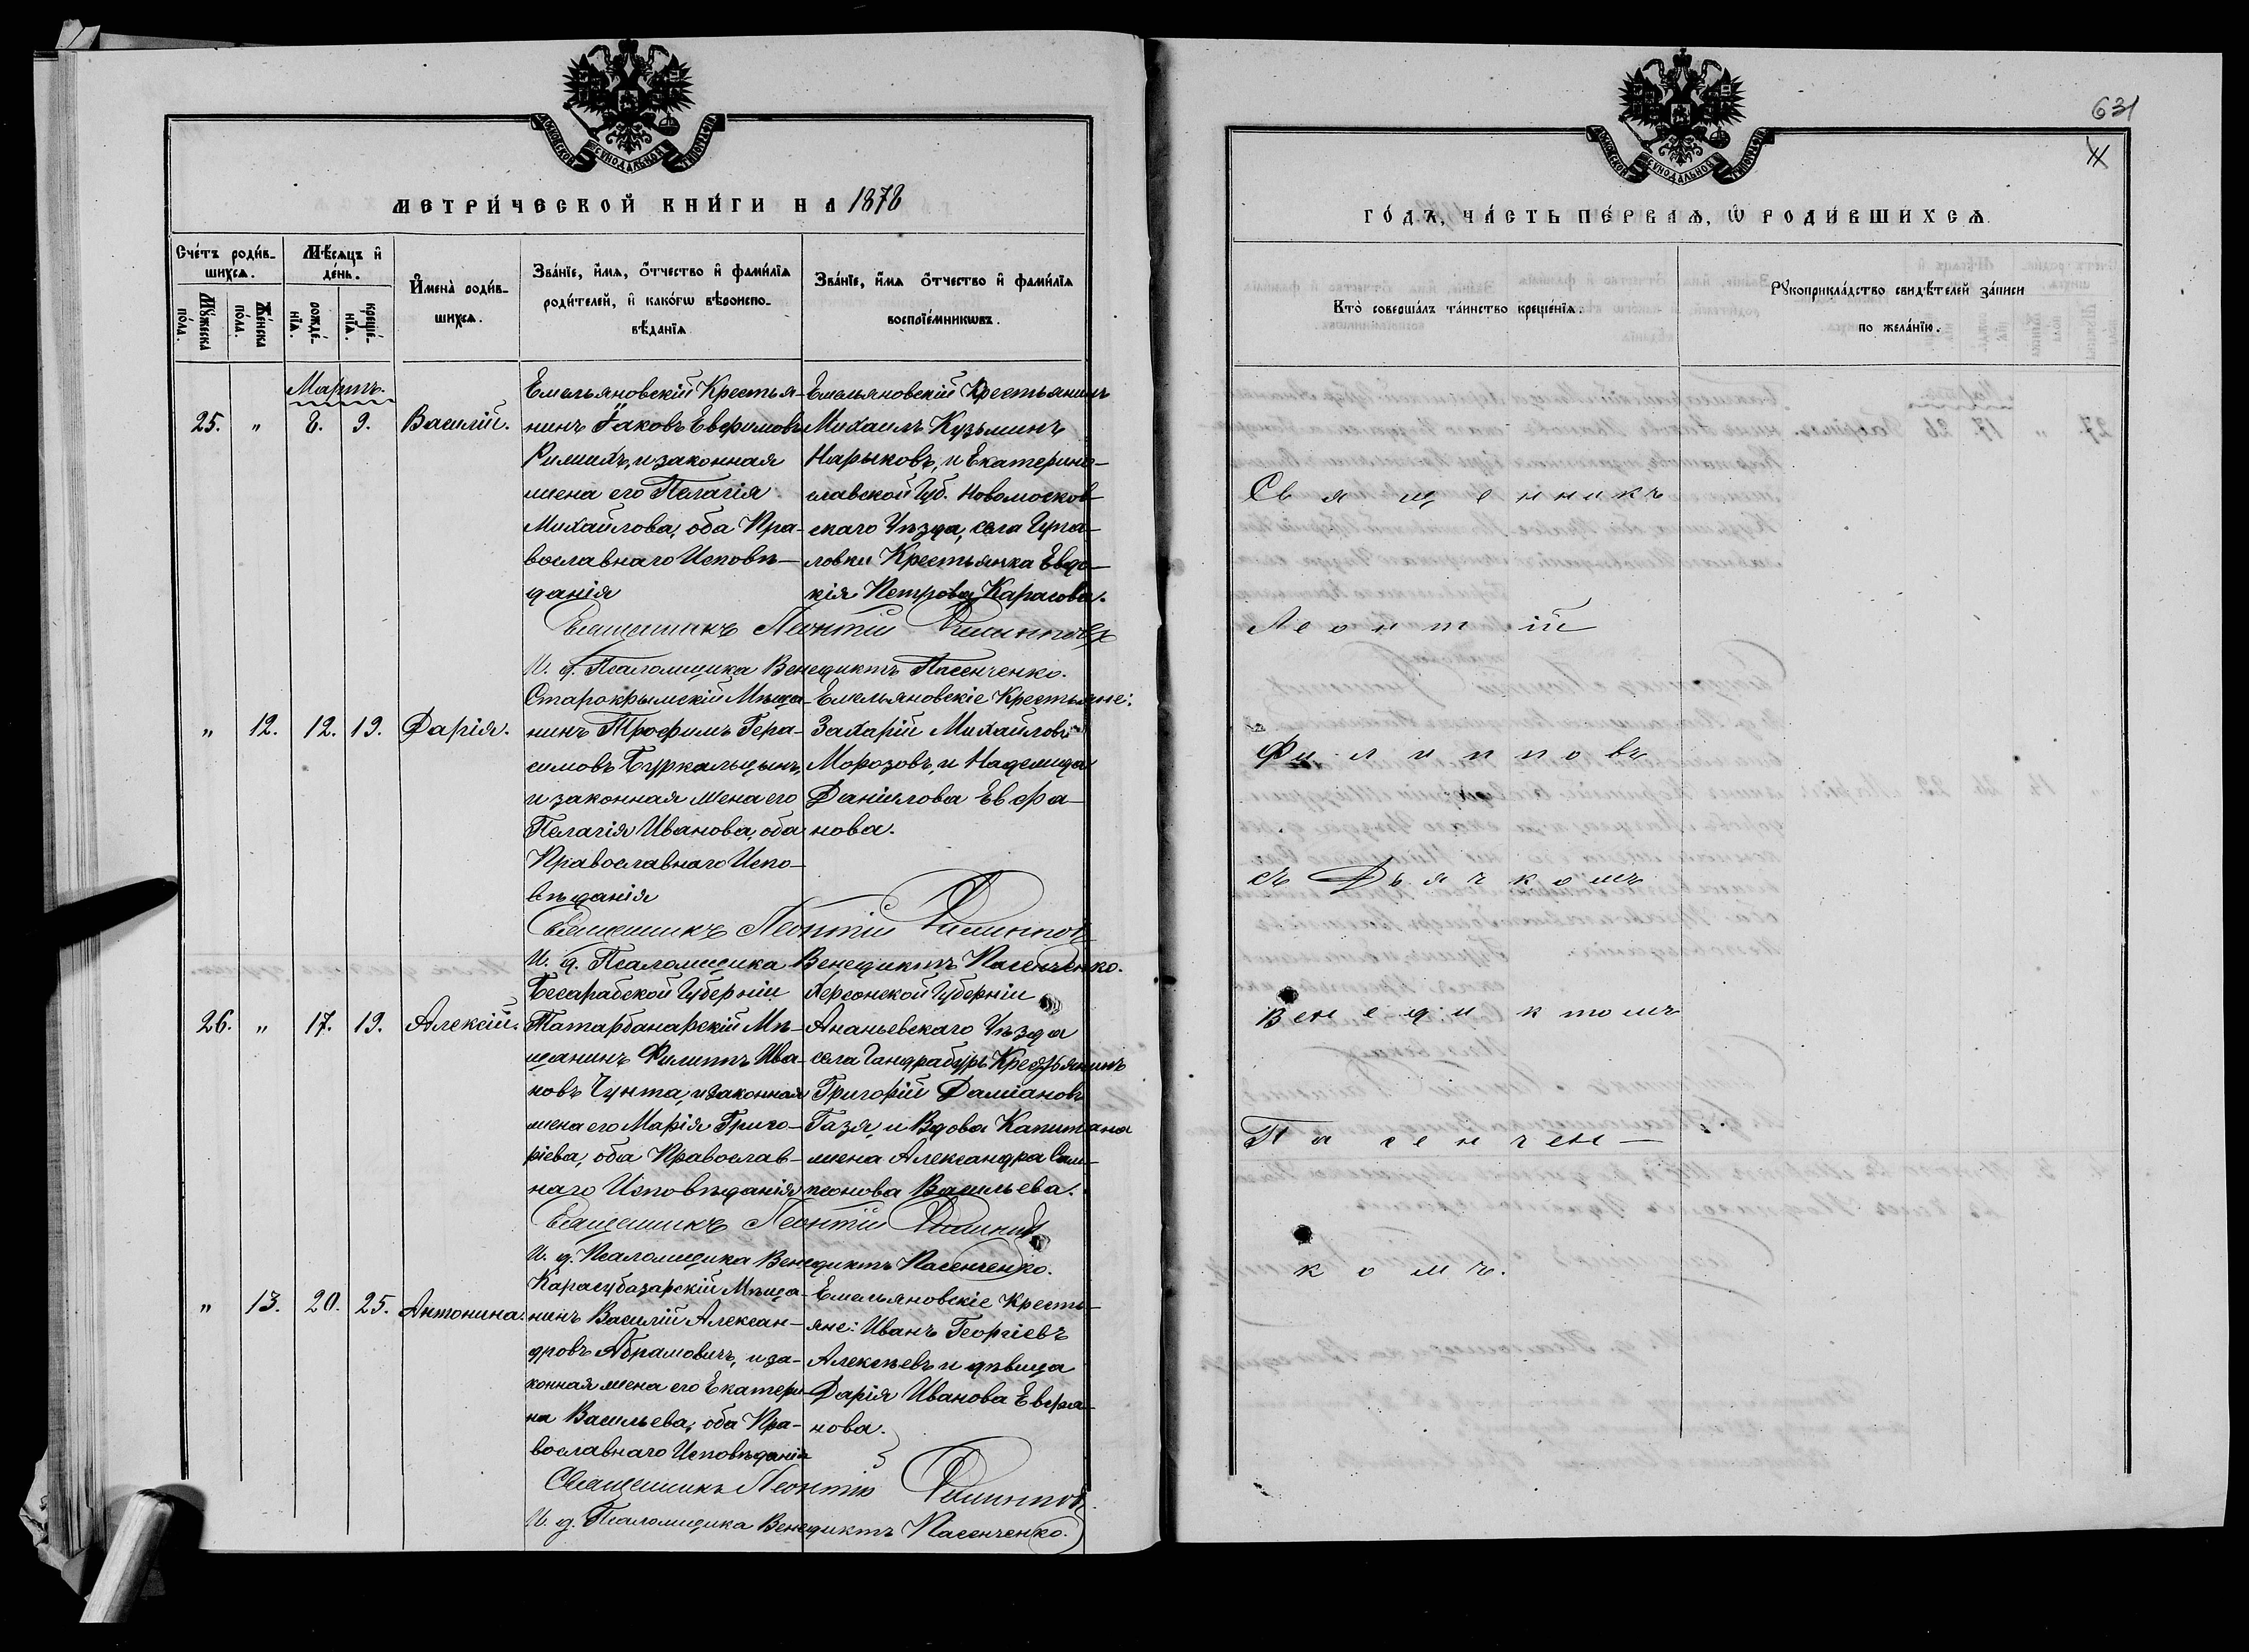 МОСКОВСКОЙ СѴНОДАЛЬНОЙ ТИПОГРАФІИ
МЕТРИ́ЧЕСКОЙ КНИ́ГИ НА 1878
Сче́тъ роди́в-
шихсѧ.
Мѣ́сѧцъ и҆
де́нь.
Мꙋ́жеска по́ла.
Же́нска по́ла.
рожде́-
нїѧ.
креще́-
нїѧ.
И҆мена̀ роди́в-
шихсѧ.
Зва́нїе, и҆́мѧ, ѻ҆́тчество и҆ фами́лїѧ
роди́телей, и҆ како́гѡ вѣроиспо-
вѣ́данїѧ
Зва́нїе, и҆́мѧ ѻ҆́тчество и҆ фами́лїѧ
воспрїе́мникѡвъ.
Мартъ.
25. " 8. 9. Василій.
Емельяновскій Крестья-
нинъ Іаковъ Евфимовъ
и законная
жена его Пелагія
Михайлова, оба Пра-
вославнаго Исповѣ-
данія
Емельяновскій Крестьянинъ
Михаилъ Кузьминъ
Нарыковъ, и Екатерино-
славской Губ. Новомосков-
скаго Уѣзда, села
Крестьянка Евдо-
кія Петрова Карасова.
Священникъ Леонтій Филипповъ
И. д. Псаломщика Венедиктъ Пасенченко.
" 12. 12. 19. Дарія.
Старокрымскій Мѣща-
нинъ Трофимъ Гера-
симовъ Буркальцынъ,
и законная жена его
Пелагія Иванова, оба
Православнаго Испо-
вѣданія
Емельяновскіе Крестьяне:
Захарій Михайловъ
Морозовъ, и Надежда
Даніилова Евфа-
нова.
Священникъ Леонтій Филипповъ
И. д. Псаломщика Венедиктъ Пасенченко.
26. " 17. 19. Алексій.
Бесарабской Губерніи
Татарбанарскій Мѣ-
щанинъ Филиппъ Ива-
новъ Чунта, и законная
жена его Марія Григо-
рієва, оба Православ-
наго Исповѣданія
Херсонской Губерніи
Ананьевскаго Уѣзда
села Гандрабуръ Крестьянинъ
Григорій Даміановъ
Газя, и Вдова Капитана
жена Александра Сам-
псонова Васильева.
Священникъ Леонтій Филипповъ
И. д. Псаломщика Венедиктъ Пасенченко.
" 13. 20. 25. Антонина.
Карасубазарскій Мѣща-
нинъ Василій Алексан-
дровъ Абрамовичъ, и за-
конная жена его Екатери-
на Васильева, оба Пра-
вославнаго Исповѣданія
Емельяновскіе Кресть-
яне: Иванъ Георгіевъ
Алексѣевъ и дѣвица
Дарія Иванова Евфа-
нова.
Священникъ Леонтій Филипповъ
И. д. Псаломщика Венедиктъ Пасенченко.
631
МОСКОВСКОЙ СѴНОДАЛЬНОЙ ТИПОГРАФІИ
ГО́ДЪ, ЧА́СТЬ ПЕ́РВАѦ, Ѡ҆ РОДИ́ВШИХСѦ
Кто̀ соверша́лъ та́инство креще́нїѧ.
Рꙋкоприкла́дство свидѣ́телей за́писи
по жела́нїю.
Священникъ
Леонтій
Филипповъ
съ Дьячкомъ
Венедиктомъ
Пасенчен-
комъ.